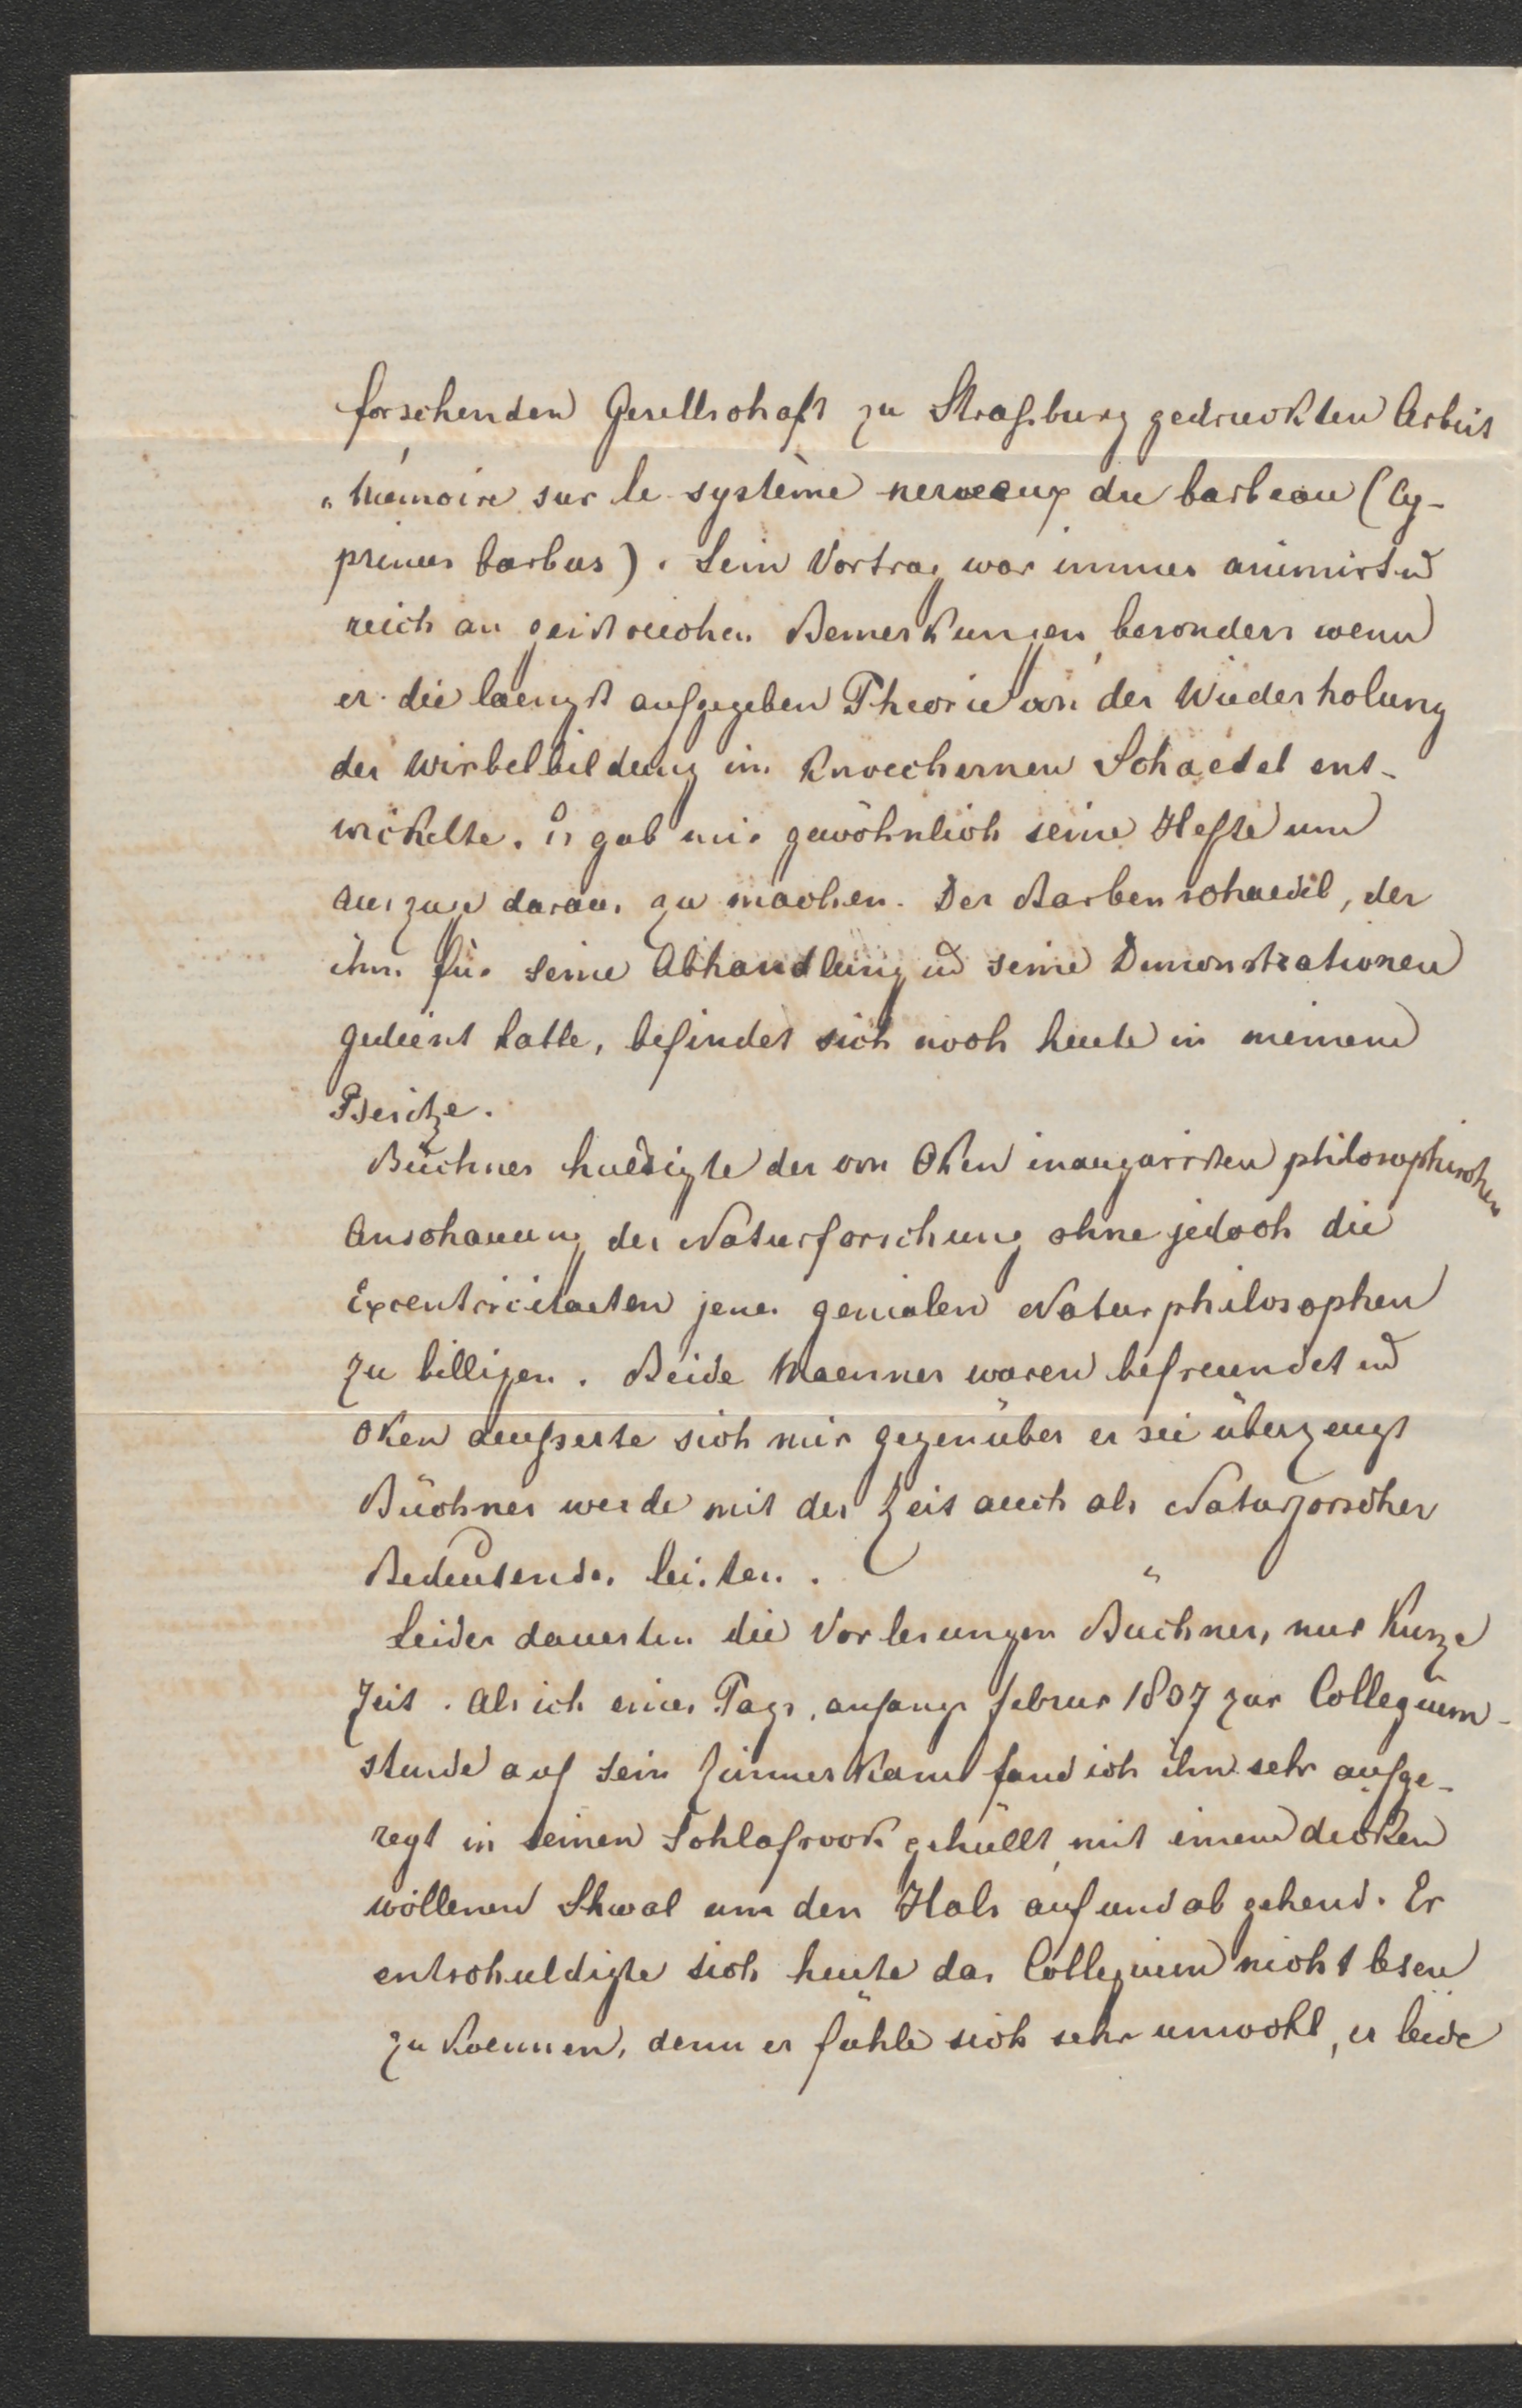 forschenden Gesellschaft zu Straßburg gedruckten Arbeit
„Mémoire sur le système nerveux du barbeau (Cy-
prinus barbus). Sein Vortrag war immer animirt ud
reich an geistreichen Bemerkungen, besonders wenn
er die laengst aufgegeben Theorie von der Wiederholung
der Wirbelbildung im knoechernen Schaedel ent-
wickelte. Er gab mir gewöhnlich seine Hefte um
Auszuge daraus zu machen. Der Barbenschaedel, der
ihm für seine Abhandlung ud seine Demonstrationen
gedient hatte, befindet sich noch heute in meinem
Besitze.
Büchner huldigte der von Oken inaugurirten philosophischen
Anschauung der Naturforschung ohne jedoch die
Excentricitaeten jenes genialen Naturphilosophen
zu billigen. Beide Maenner waren befreundet ud
Oken aeußerte sich mir gegenüber er sei überzeugt
Büchner werde mit der Zeit auch als Naturforscher
Bedeutendes leisten. "
Leider dauerten die Vorlesungen Buchners nur kurze
Zeit. Als ich eines Tags, anfangs Februr 1837 zur Collegium-
stunde auf sein Zimmer kam fand ich ihn sehr aufge-
regt in seinen Schlafrock gehüllt, mit einem dicken
wollenen Shwal um den Hals auf und ab gehend. Er
entschuldigte sich heute das Collegium nicht lesen
zu koennen, denn er fühle sich sehr unwohl, er leide